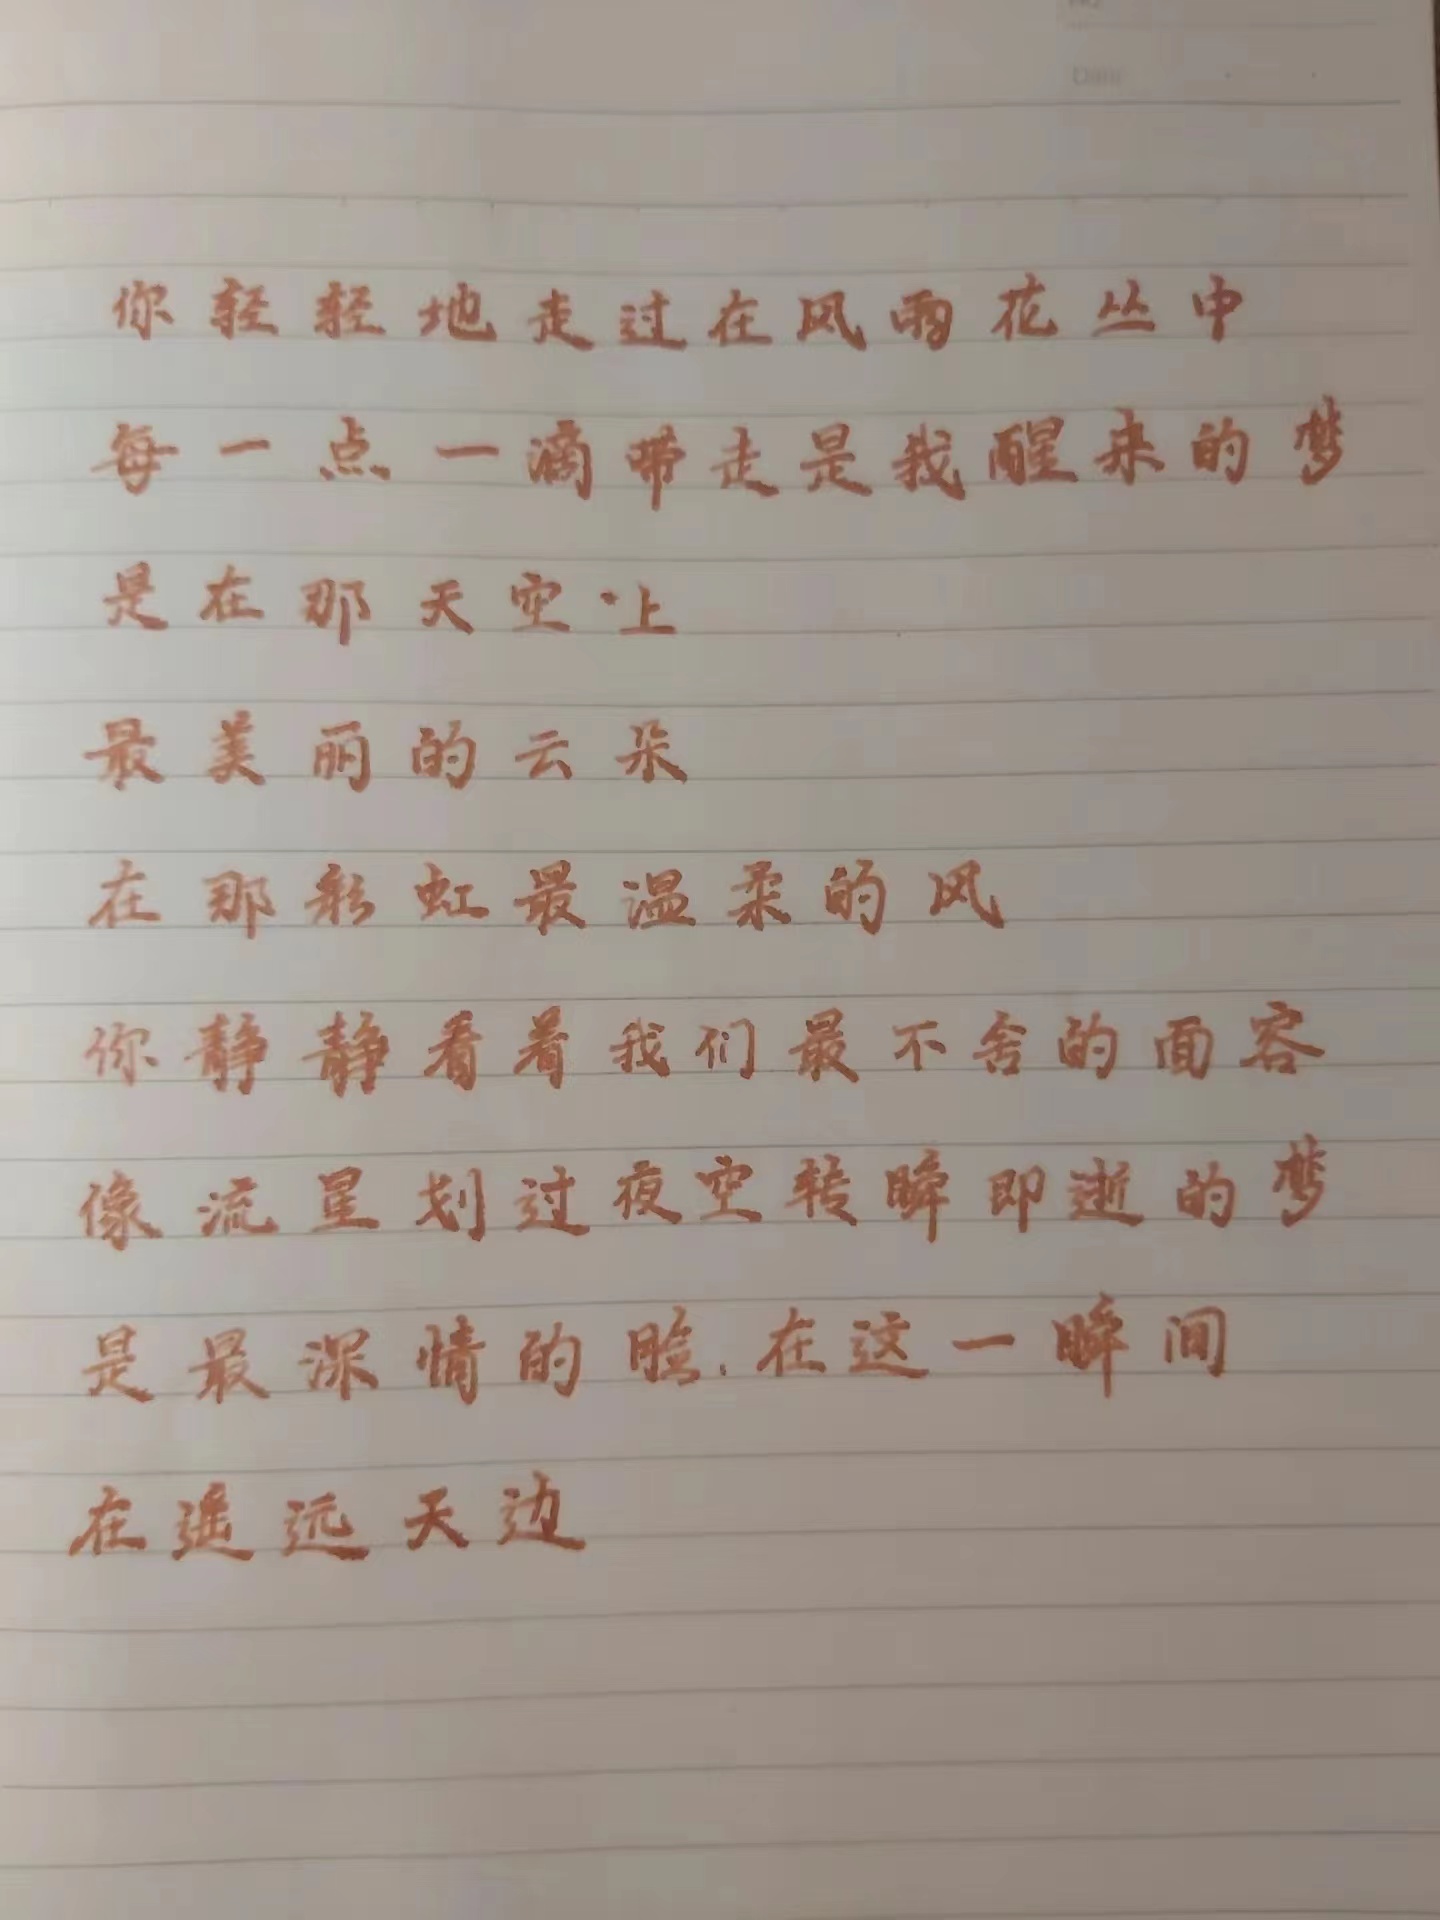 Date
你轻轻地走过在风雨花丛中
每一点一滴带走是我醒来的梦
是在那天空上
最美丽的云朵
在那彩虹最温柔的风
你静静看着我们最不舍的面容
像流星划过夜空转瞬即逝的梦
是最深情的脸.在这一瞬间
在遥远天边